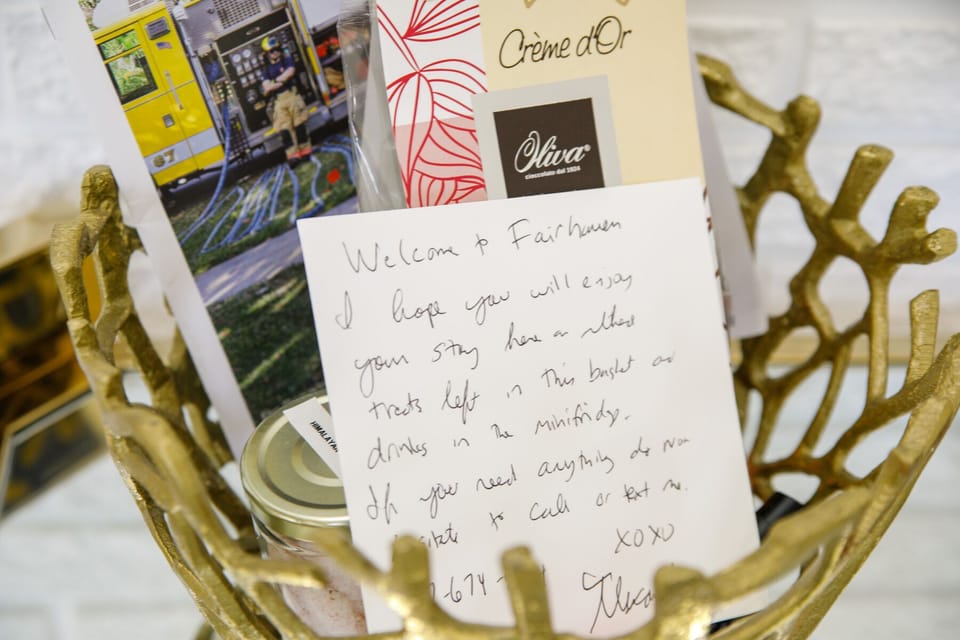 Crème d'Or
Oliva®
cioccolato dal 1924
HIMALAYAN
Welcome to Fairhaven
I hope you will enjoy
your stay here
treats left in this basket and
drinks in the minifridge.
If you need anything do not
to call or text me.
XOXO
-674-